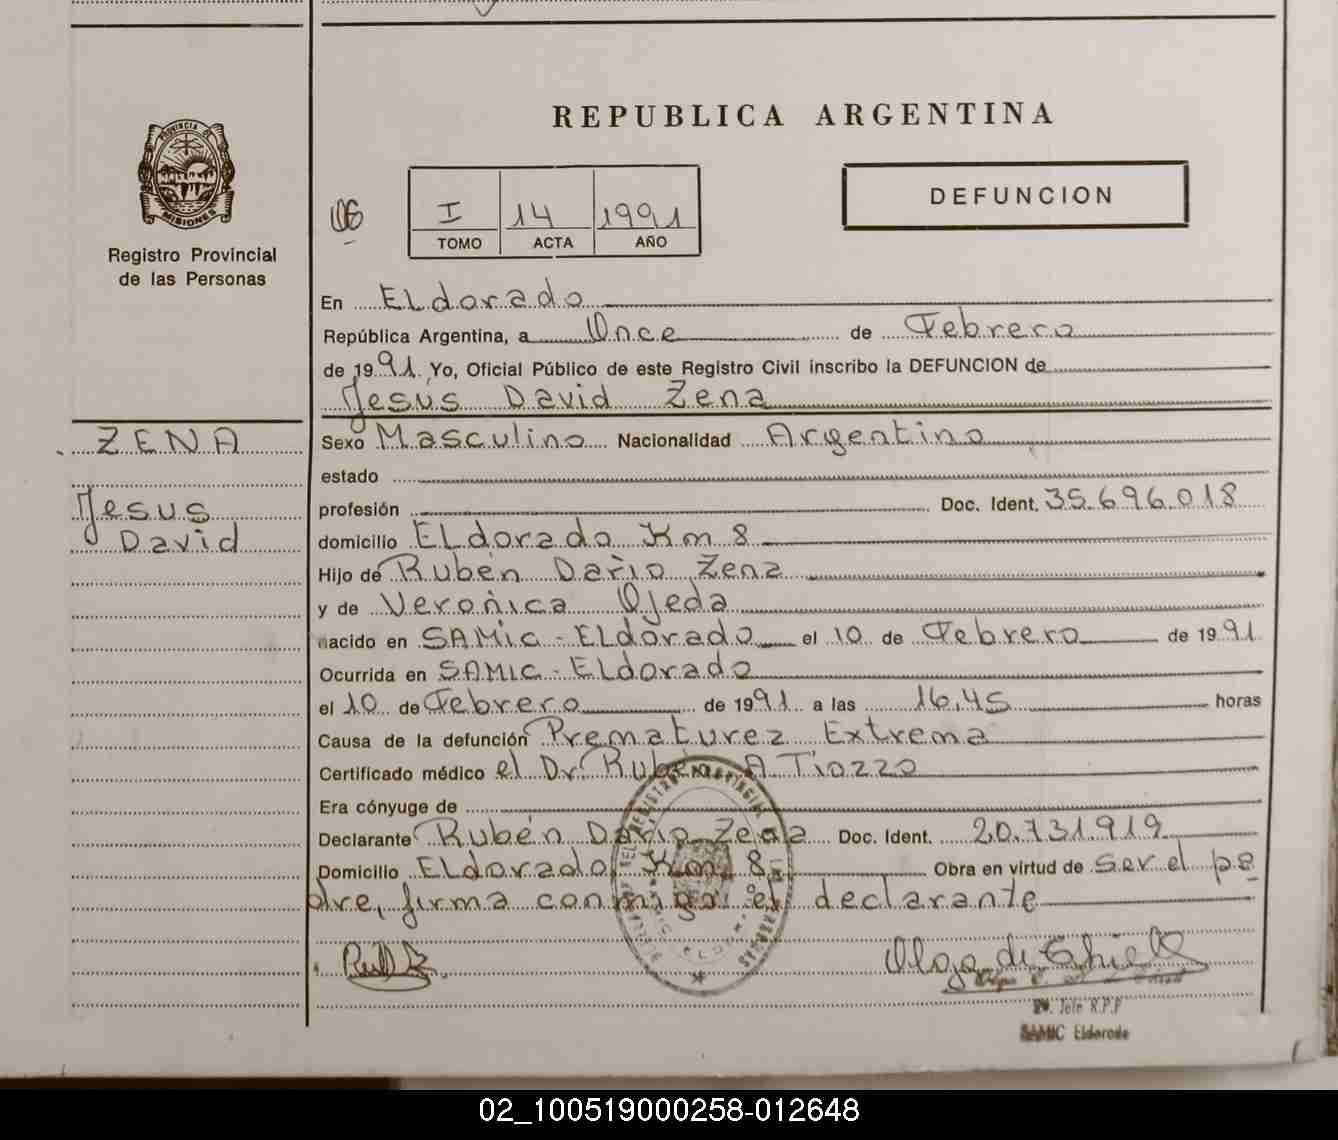 REPUBLICA ARGENTINA
PROVINCIA DE
MISIONES
Registro Provincial
de las Personas
06
I 14 1991
TOMO ACTA AÑO
DEFUNCION
En ELdorado
República Argentina, a Once de Febrero
de 1991 Yo, Oficial Público de este Registro Civil inscribo la DEFUNCION de
Jesús David Zena
ZENA
Jesus
David
Sexo Masculino Nacionalidad Argentino
estado
profesión Doc. Ident. 35.696.018
domicilio ELdorado Km 8
Hijo de Rubén Darío Zena
y de Verónica Ojeda
nacido en SAMic - ELdorado el 10 de Febrero de 1991
Ocurrida en SAMIC - ELdorado
el 10 de Febrero de 1991 a las 16,45 horas
Causa de la defunción Prematurez Extrema
Certificado médico el Dr. Rubén A Tiozzo
Era cónyuge de
Declarante Rubén Darío Zena Doc. Ident. 20.731.919
Domicilio ELdorado Km 8 Obra en virtud de ser el pa
dre, firma conmigo el declarante
Olga de
R.P.P
SAMIC Eldorado
02_100519000258-012648